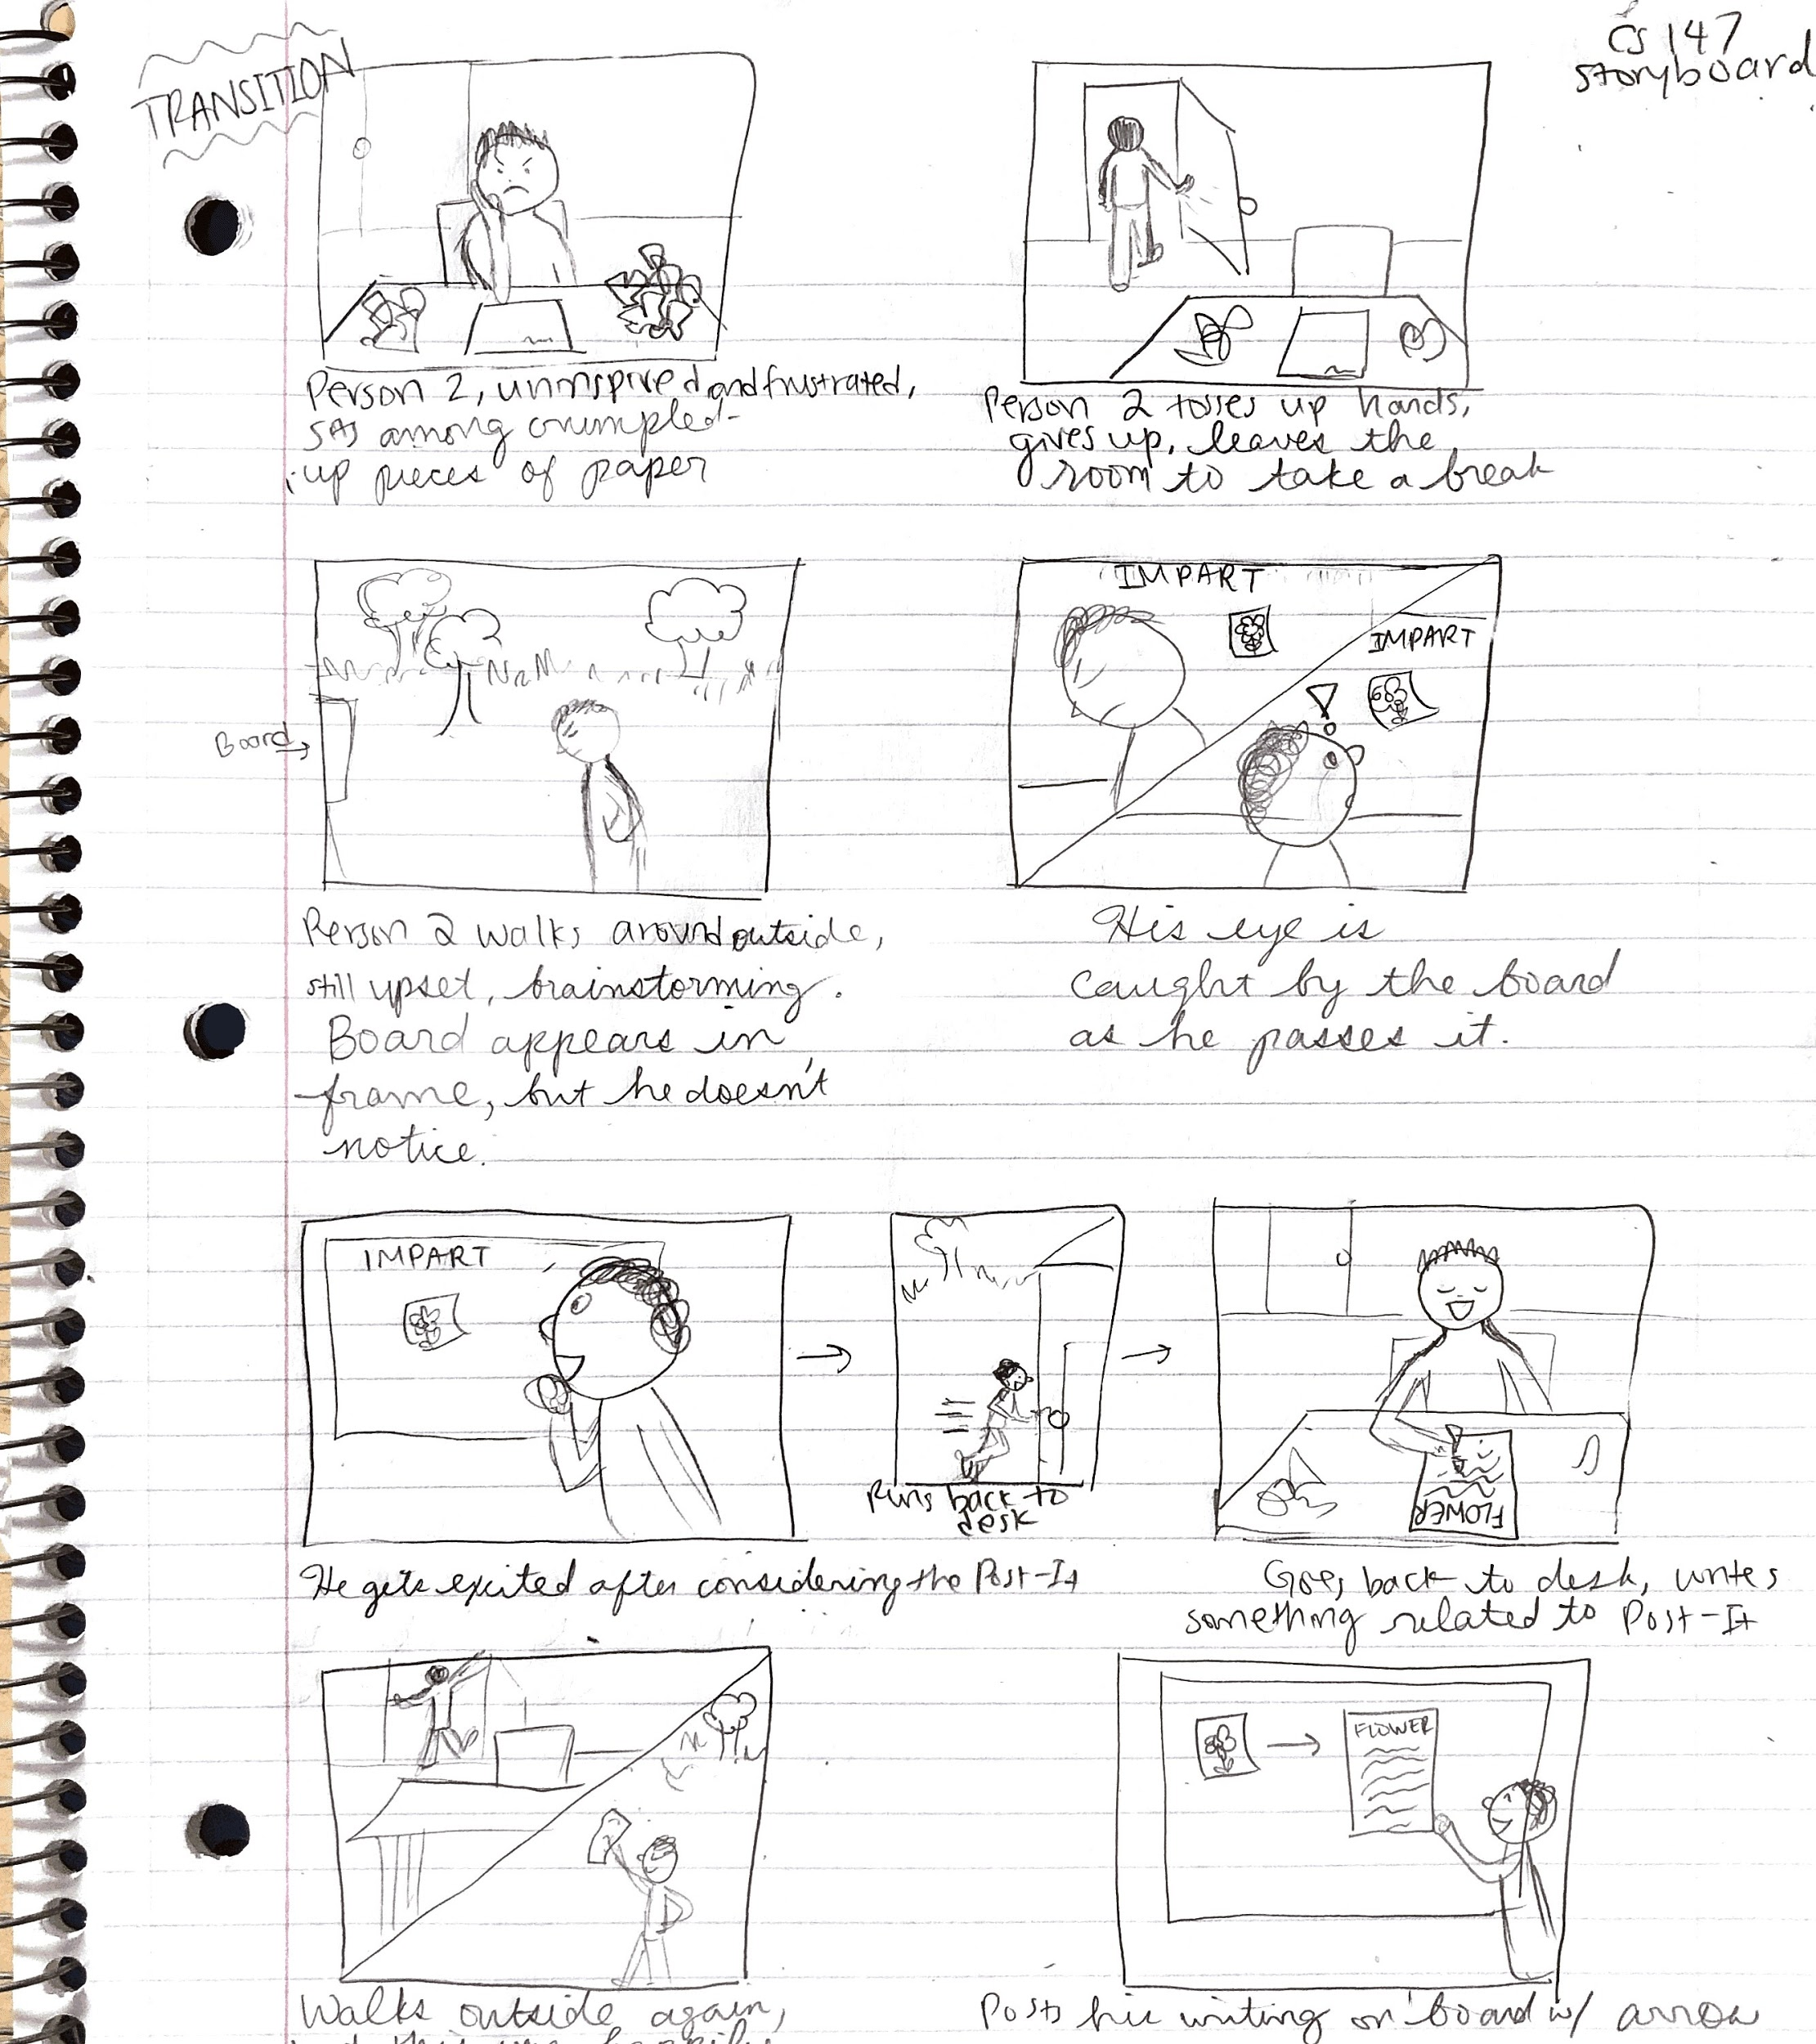 CS 147
storyboard
TRANSITION
Person 2, uninspired and frustrated,
sits among crumpled-
up pieces of paper
Person 2 tosses up hands,
gives up, leaves the
room to take a break
Board →
IMPART
IMPART
Person 2 walks around outside,
still upset, brainstorming.
Board appears in
frame, but he doesn't
notice.
His eye is
caught by the board
as he passes it.
IMPART
FLOWER
Runs back to
desk
He gets excited after considering the Post-It
Goes back to desk, writes
something related to Post-It
FLOWER
Walks outside again,
Posts his writing on board w/ arrow